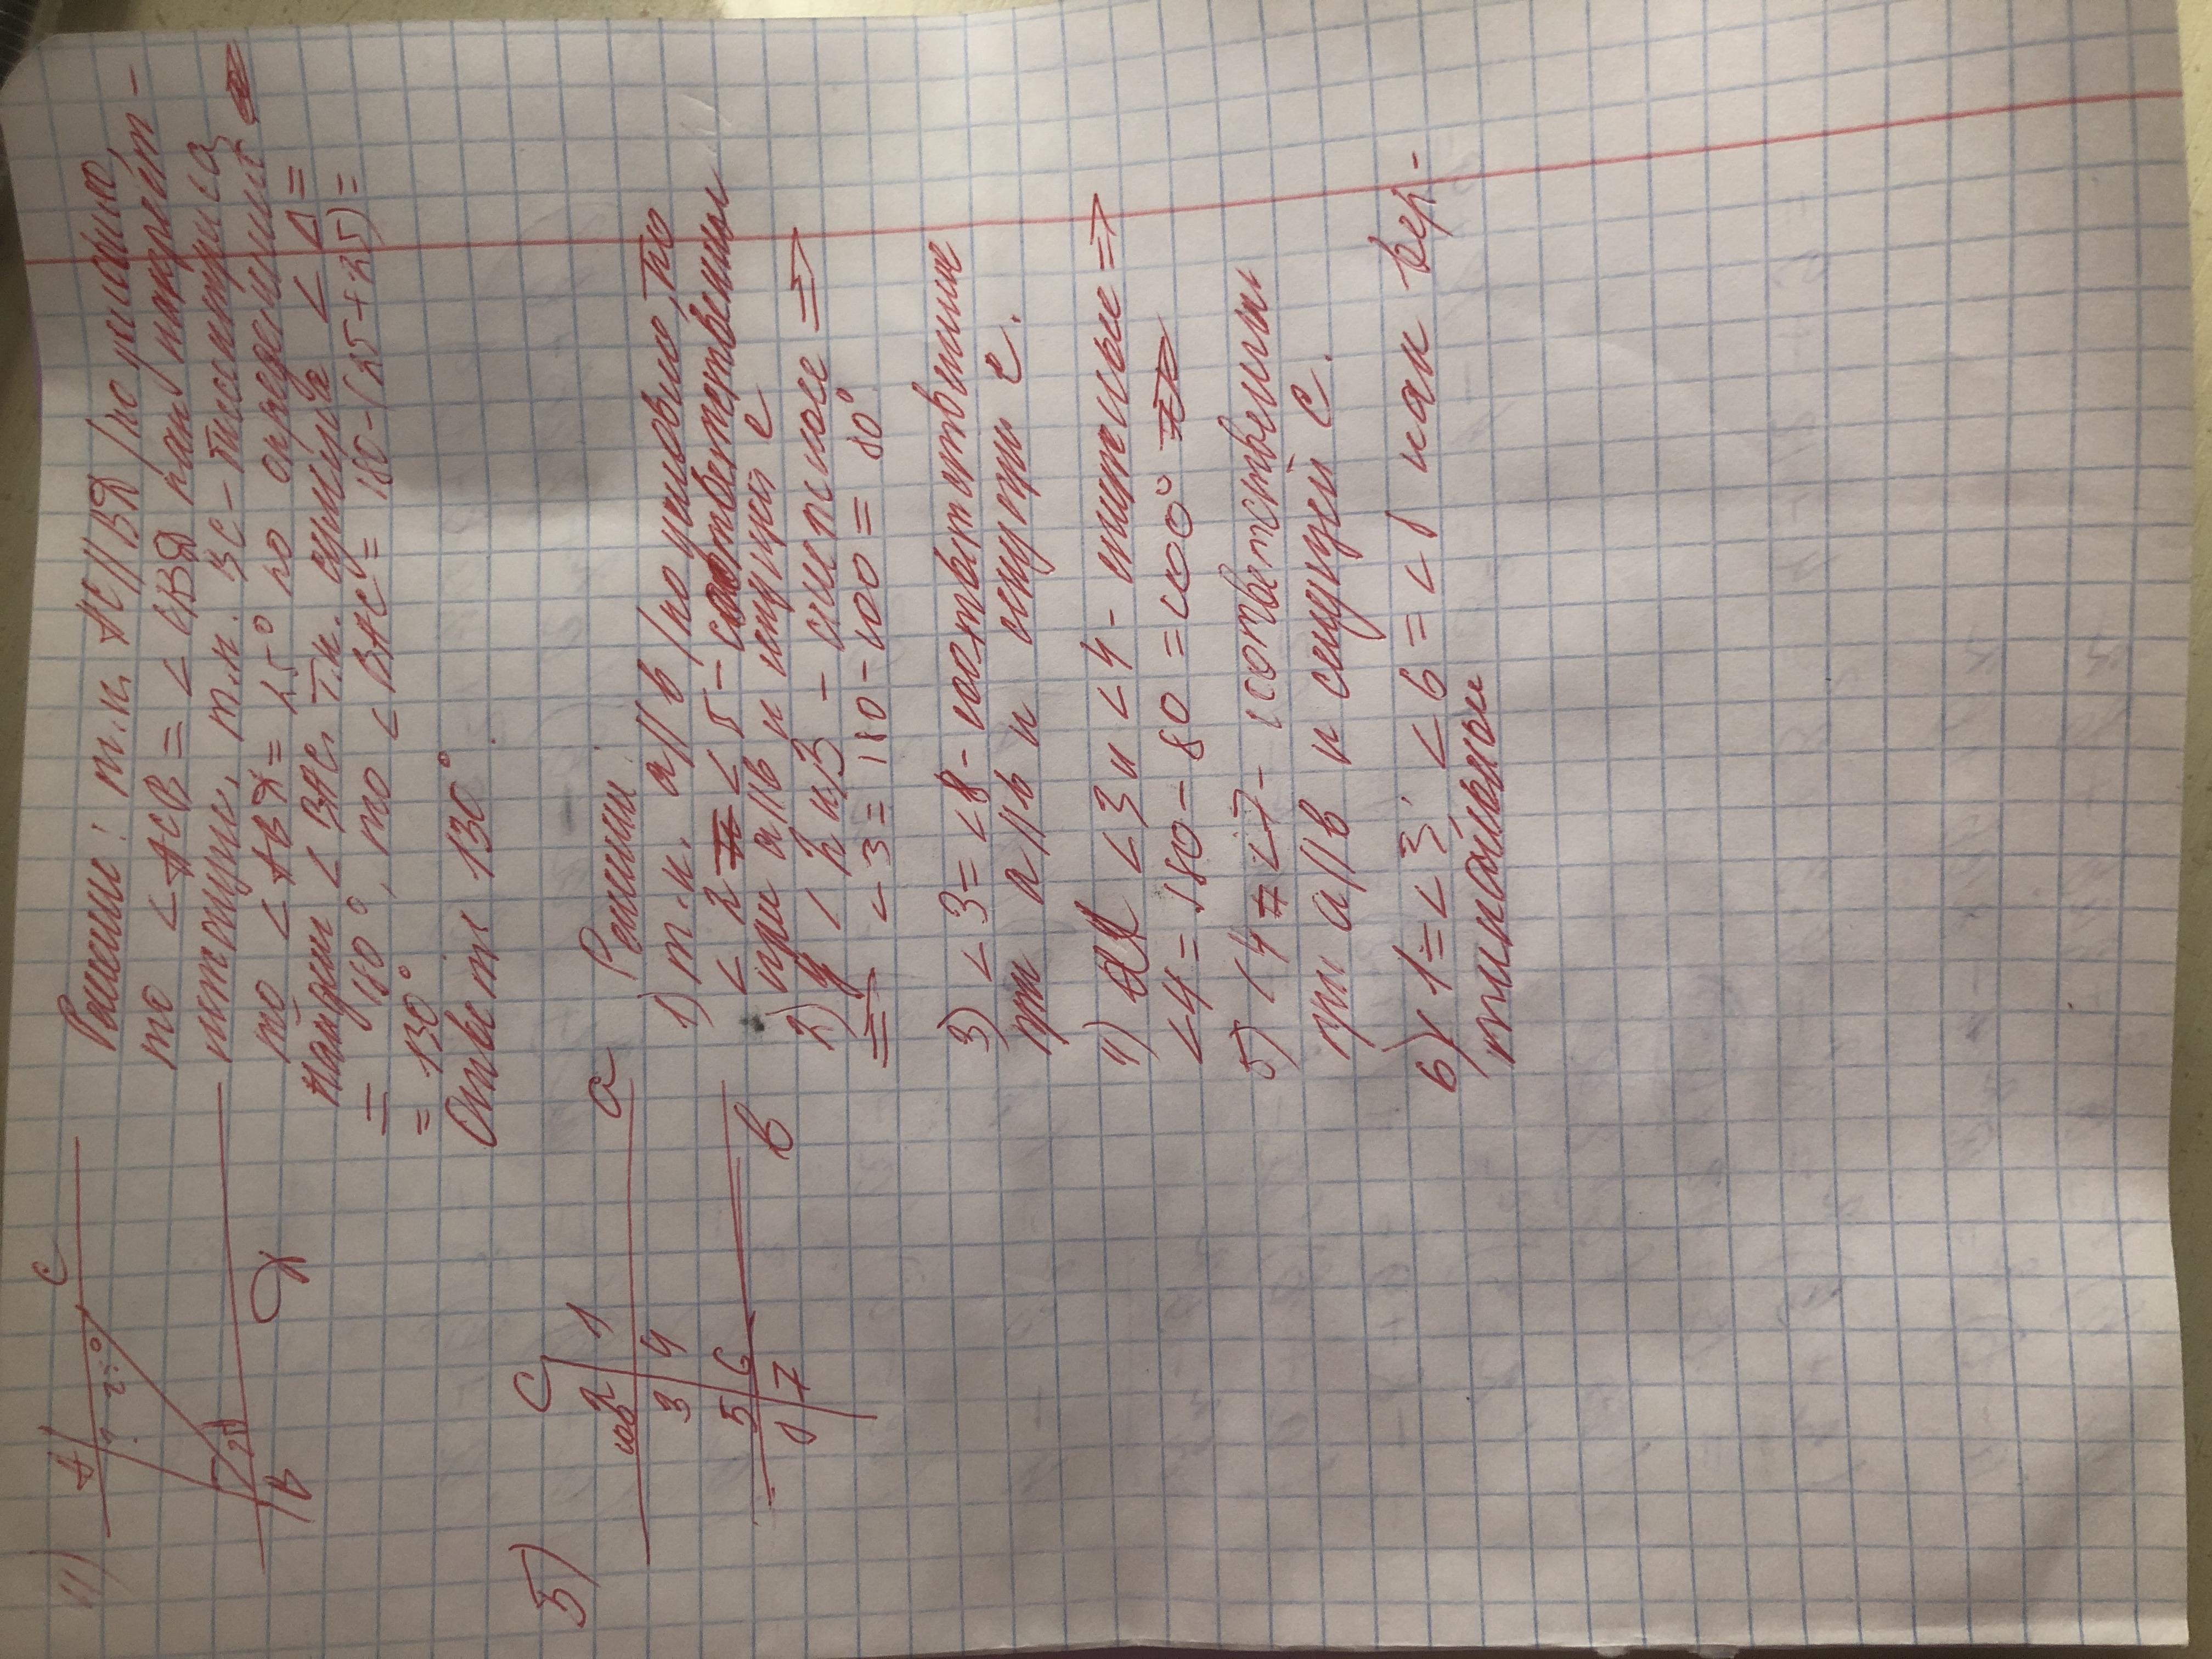 4)
A
C
?
25°
25
B
Д
Решение: т.к. AC || ВД (по условию),
то <ACB = <СВД как накрест-
лежащие, т.к. ВС - биссектриса
то <АВД = 25° по определению
Найдём <BAC. Т.к. сумма < Δ =
= 180°, то <BAC = 180-(25+25)=
= 130°
Ответ: 130°.
5)
C
a
100 2 1
3 4
5 6
8 7
b
Решение:
1) т.к. a || b (по условию), то
<2 = <5 - соответственные
при a || b и секущей c
2) < 2 и 3 - смежные =>
=> <3 = 180-100 = 80°
3) <3 = <8 - соответственные
при a || b и секущ c.
4) <3 и <4 - смежные =>
<4 = 180-80 = 100°
5) <4 = <7 - соответственные
при a || b и секущей c.
6) <1 = <3, <6 = <1 как вер-
тикальные